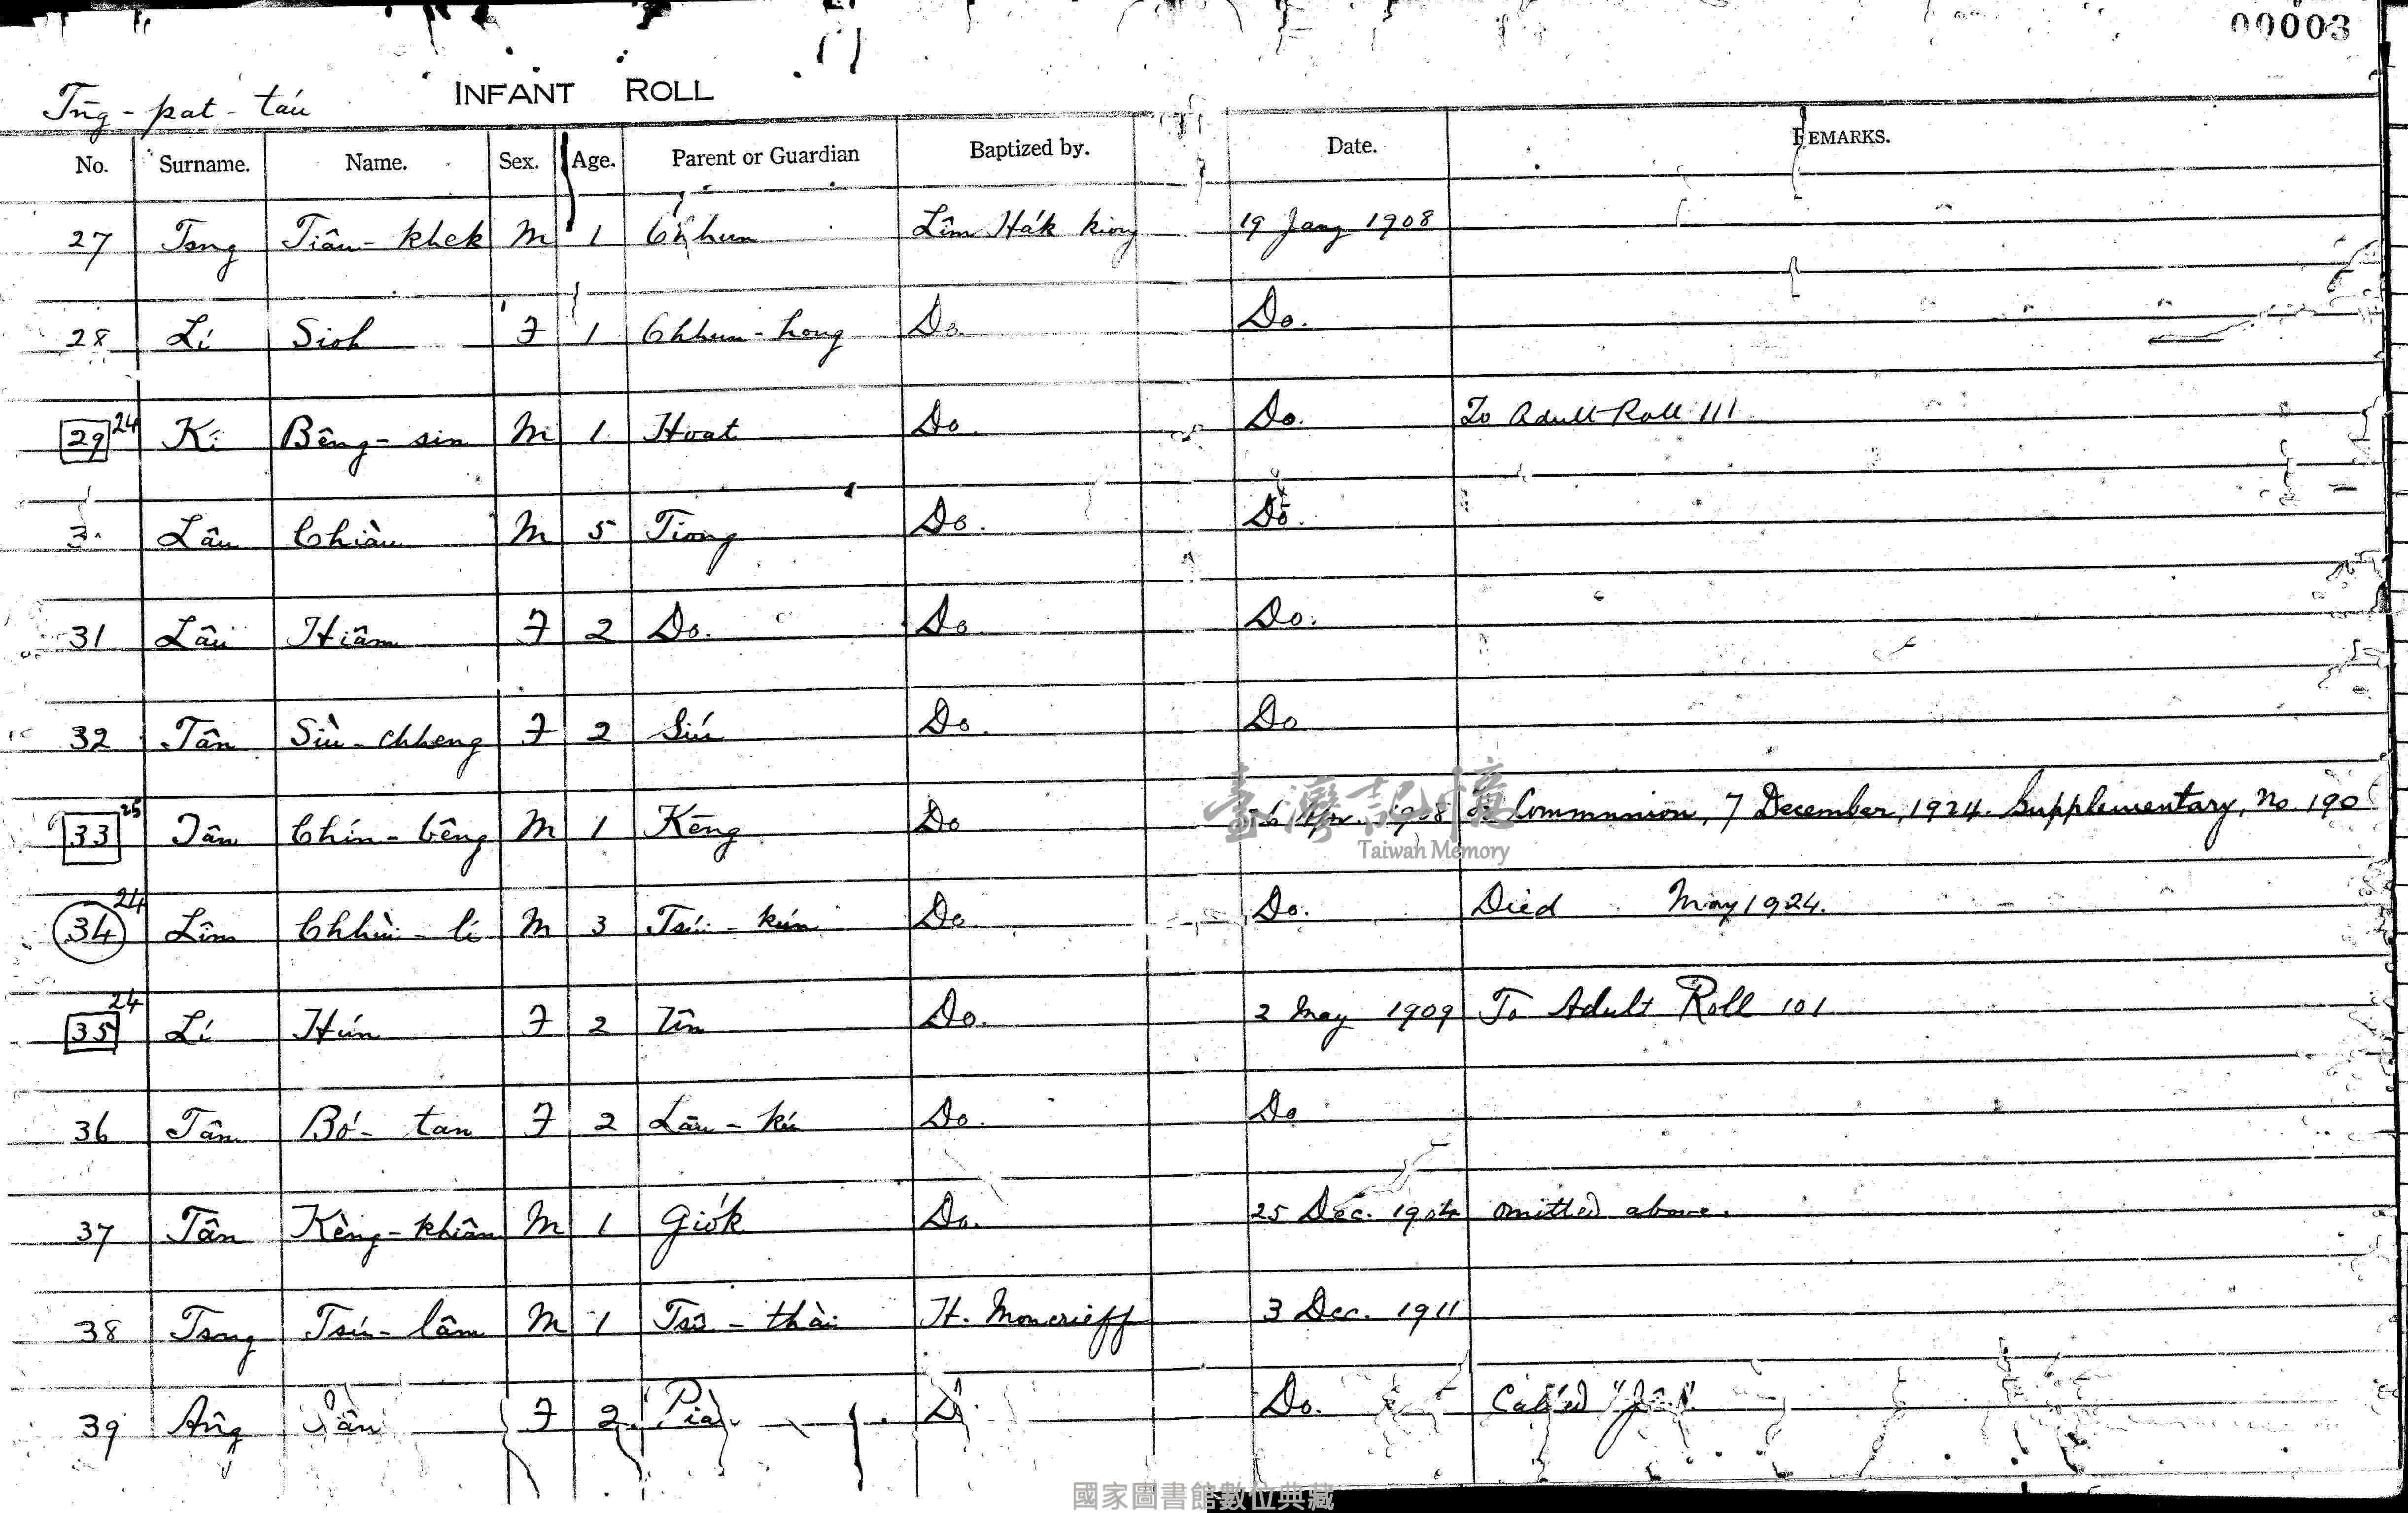 00003
Tn̄g-pat-táu INFANT ROLL
No. Surname. Name. Sex. Age. Parent or Guardian Baptized by. Date. REMARKS.
27 Tsng Tiâu-khek M 1 Chhun Lîm Hák kiong 19 Jany 1908
28 Lí Sioh F 1 Chhun-hong Do. Do.
29 24 Ki Bêng-sin M 1 Hoat Do. Do. To Adult Roll 111
Lâu Chiàu M 5 Tiong Do. Do.
31 Lâu Hiâm F 2 Do. Do. Do.
32 Tân Siù-chheng F 2 Siú Do. Do
33 25 Tân Chín-bêng M 1 Kēng Do 1908 Communion, 7 December, 1924. Supplementary, No. 190
34 24 Lîm M 3 Do Do. Died May 1924.
35 24 Lí Hún F 2 Tîn Do. 2 May 1909 To Adult Roll 101
36 Tân Bó-tan F 2 Lāu-kú Do. Do
37 Tân Kèng-khiâm M 1 Giók Do. 25 Dec. 1904 omitted above.
38 Tsng Tsú-lâm M 1 Tsū-thài H. Moncrieff 3 Dec. 1911
39 Âng F 2 Do. Called
臺灣記憶
Taiwan Memory
國家圖書館數位典藏